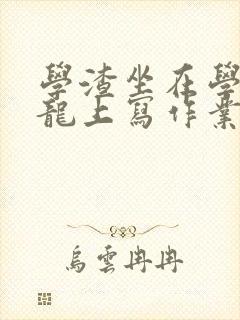 學渣坐在學
龍上寫作業
烏雲冉冉